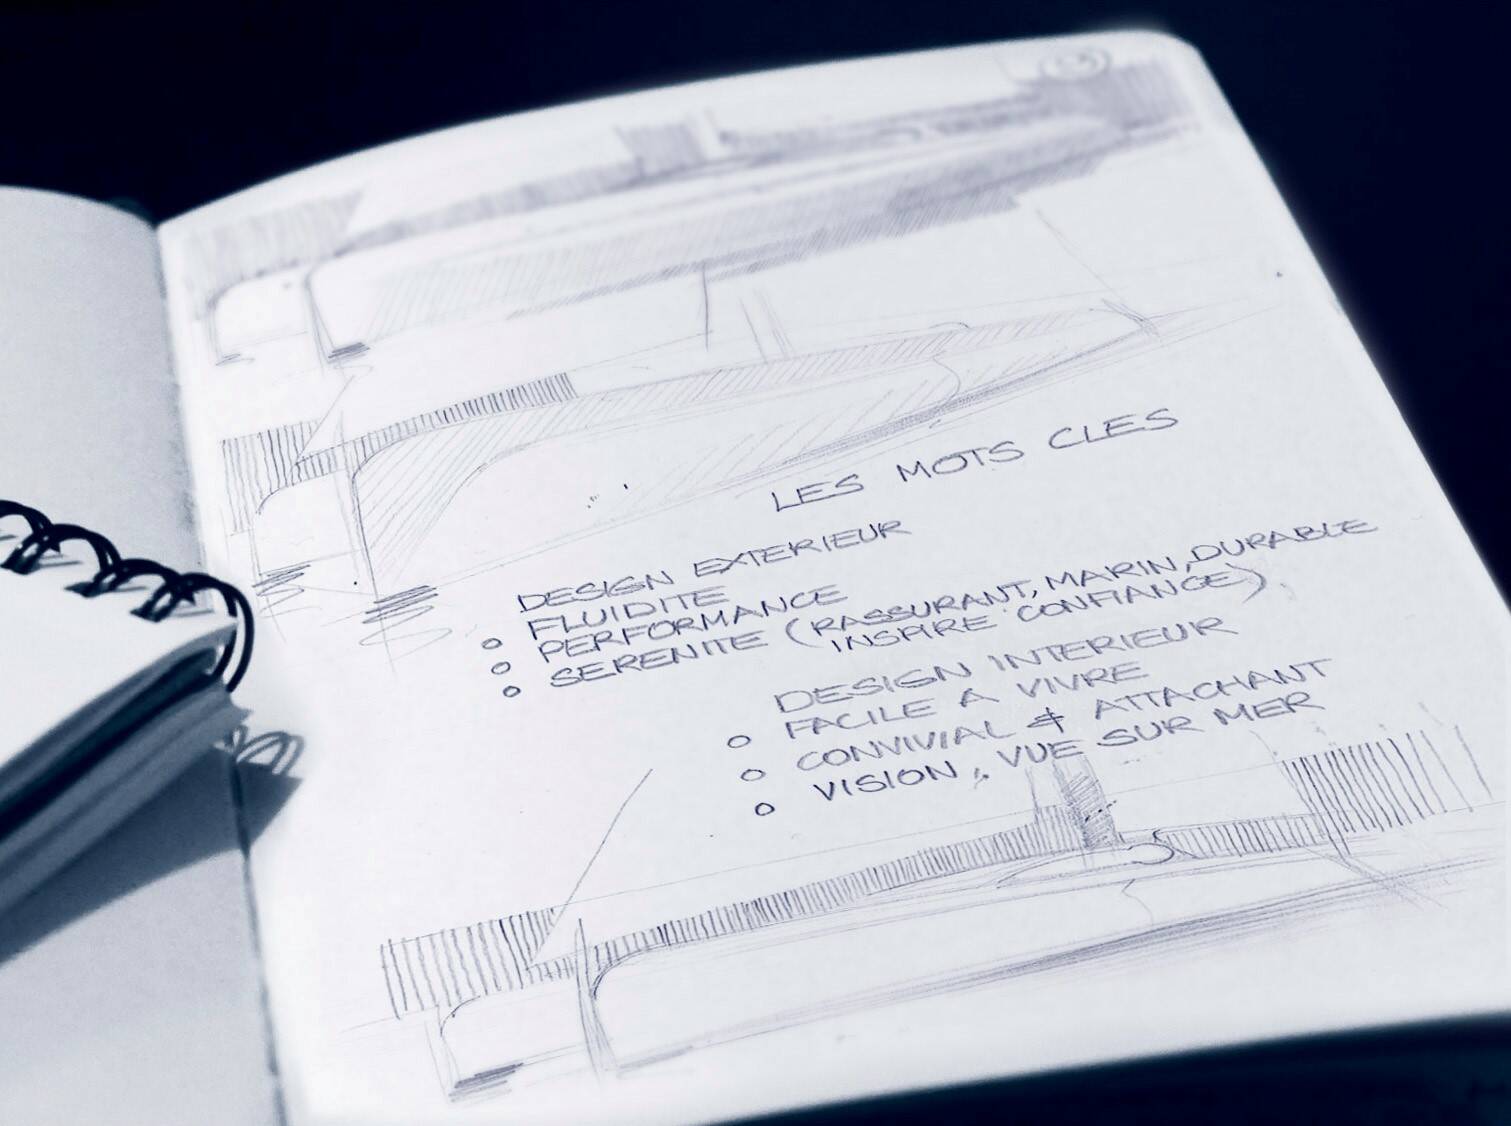 LES MOTS CLES
DESIGN EXTERIEUR
FLUIDITE
PERFORMANCE
SERENITE (RASSURANT, MARIN, DURABLE
INSPIRE CONFIANCE)
DESIGN INTERIEUR
FACILE A VIVRE
CONVIVIAL & ATTACHANT
VISION, VUE SUR MER